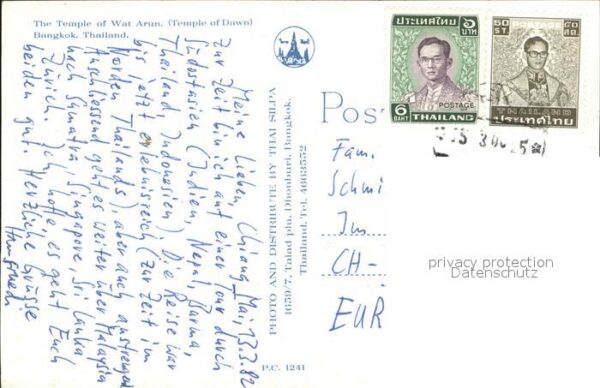 The Temple of Wat Arun. (Temple of Dawn)
Bangkok, Thailand.
Chiang Mai, 13.3.82
Meine Lieben,
Zur Zeit bin ich auf einer Tour durch
Südostasien (Indien, Nepal, Burma,
Thailand, Indonesien) Die Reise war
bis jetzt erlebnisreich (zur Zeit im
Norden Thailands), aber auch anstrengend
Anschliessend geht es weiter über Malaysia
nach Sumatra, Singapore, Sri Lanka
Zürich. Ich hoffe, es geht Euch
beiden gut. Herzliche Grüsse
PHOTO AND DISTRIBUTE BY THAI SILPA
1659/7, Talad plu, Dhonburi, Bangkok.
Thailand. Tel. 4663552
P.C. 1241
Pos
Fam.
Schmi
Im
CH-
EUR
ประเทศไทย ๖ บาท
POSTAGE
6 BAHT THAILAND
50 ST. POSTAGE ๕๐ สต.
THAILAND
ประเทศไทย
privacy protection
Datenschutz